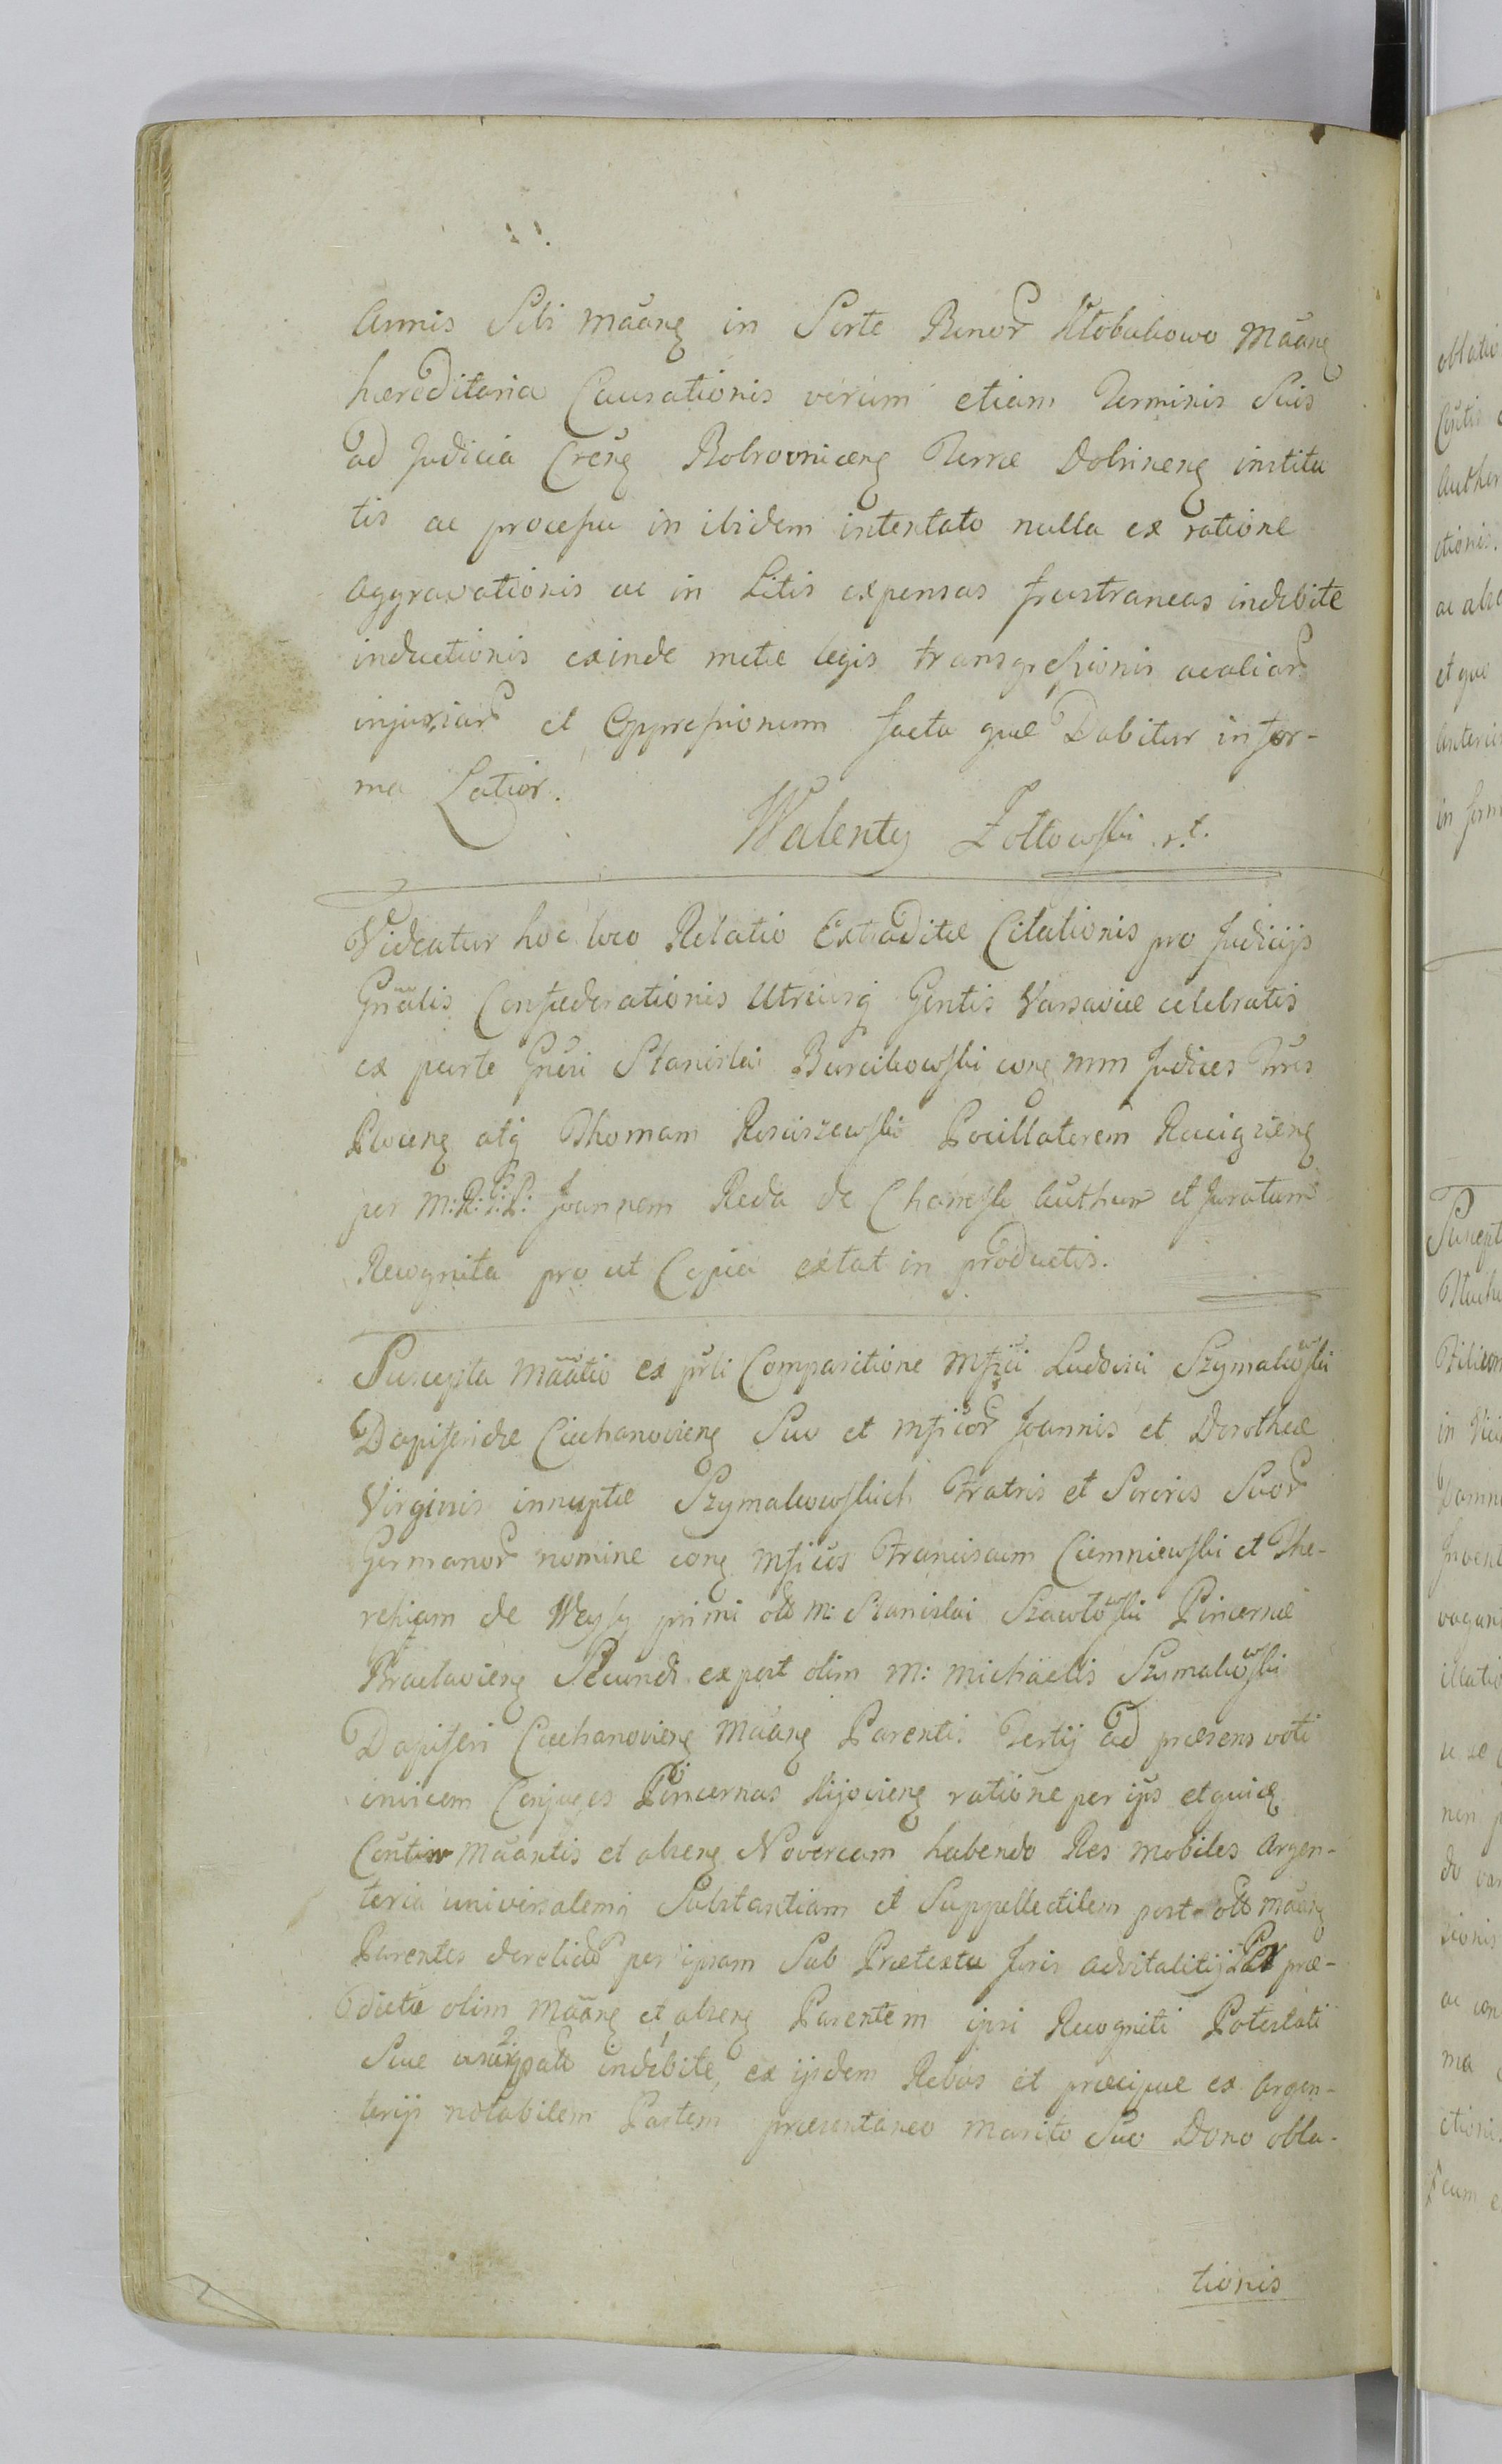 Armis Sibi Mãang in Sorte Bonor Kłobukowo Mãang
hæreditaria Causationis verum etiam Terminis Suis
ad Judicia Creng Bobrovniceng Terræ Dobrineng institu
tis ac processu in ibidem intentato nulla ex ratione
aggravationis ac in Litis expensas frustraneas indebite
inductionis exinde metæ legis transgressionis acaliar
injuriar et Oppressionum facta quæ Dabitur in for-
ma Latior.
Walenty Zołtowski r.t.
Videatur hoc loco Relatio Extraditæ Citationis pro Judicijs
Gnãlis Confæderationis Utriusq Gentis Varsaviæ celebratis
ex parte Gnẽri Stanislai cong mm Judices Trres
Ploceng atq Thomam Rosciszewski Pocillatorem Raciązieng
per M:R:P:P: Joannem Reda de Authum et Juratum
Recognita pro ut Copia extat in productis.
Suscepta Mãatio ex prli Comparitione Mfici Ludovici Szymakowski
Dapiferidæ Ciechanovieng Suo et Mficor Joannis et Dorotheæ
Virginis innuptæ Szymakowskich Fratris et Sororis Suor
Germanor nomine cong Mficos Franciscum Ciemniewski et The-
resiam de Wessy primi ott M: Stanislai Szawłowski Pincernæ
Braclavieng Secundi expost olim M: Michaelis Szymakowski
Dapiferi Ciechanovieng Mãang Parentis Tertij ad præsens voti
invicem Conjuges Pincernas Kijovieng ratione per ips et quidẽ
Cõntim Mãantis et abseng Novercam habendo Res mobiles Argen-
teria universalemq Substantiam et Suppellectilem post ott Mãang
Parentes derelictu per ipsam Sub Prætextu Juris advitalitij Per præ-
dictu olim Mãang et abseng Parentem ipsi Recogniti Potestati
Suæ usurpatu indebite, ex ijsdem Rebus et præcipue ex Argen-
terijs notabilem Partem præcontaneo Marito Suo Dono obla-
tionis